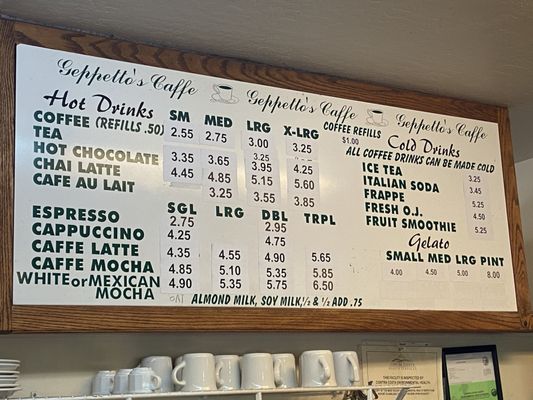 Geppetto's Caffe Geppetto's Caffe Geppetto's Caffe
Hot Drinks SM MED LRG X-LRG
COFFEE (REFILLS .50) 2.55 2.75 3.00 3.25
TEA 3.25
HOT CHOCOLATE 3.35 3.65 3.95 4.25
CHAI LATTE 4.45 4.85 5.15 5.60
CAFE AU LAIT 3.25 3.55 3.85
SGL LRG DBL TRPL
ESPRESSO 2.75 2.95
CAPPUCCINO 4.25 4.75
CAFFE LATTE 4.35 4.55 4.90 5.65
CAFFE MOCHA 4.85 5.10 5.35 5.85
WHITE or MEXICAN MOCHA 4.90 5.35 5.75 6.50
OAT ALMOND MILK, SOY MILK, ½ & ½ ADD .75
COFFEE REFILLS
$1.00
Cold Drinks
ALL COFFEE DRINKS CAN BE MADE COLD
ICE TEA 3.25
ITALIAN SODA 3.45
FRAPPE 5.25
FRESH O.J. 4.50
FRUIT SMOOTHIE 5.25
Gelato
SMALL MED LRG PINT
4.00 4.50 5.00 8.00
THIS FACILITY IS INSPECTED BY
CONTRA COSTA ENVIRONMENTAL HEALTH